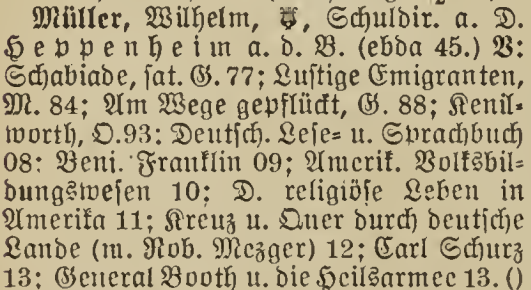 Müller, Wilhelm, Schuldir. a. D.
Heppenheim a. d. B. (ebda 45.) V:
Schabiade, sat. G. 77; Lustige Emigranten,
M. 84; Am Wege gepflückt, G. 88; Kenil-
worth, O. 93; Deutsch. Lese= u. Sprachbuch
08; Benj. Franklin 09; Amerik. Volksbil-
dungswesen 10; D. religiöse Leben in
Amerika 11; Kreuz u. Quer durch deutsche
Lande (m. Rob. Mezger) 12; Carl Schurz
13; General Booth u. die Heilsarmee 13. ()